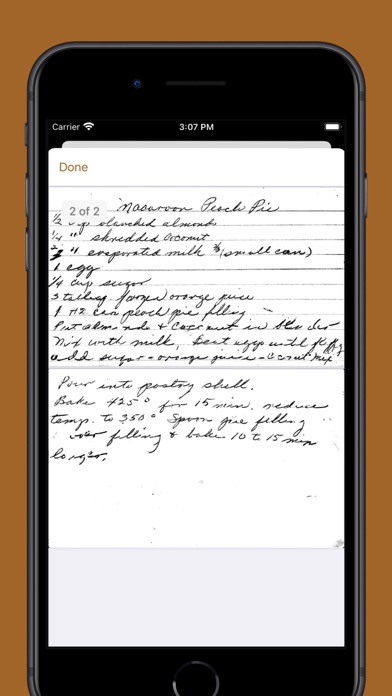 Carrier 3:07 PM
Done
2 of 2
Macaroon Peach Pie
1/2 cup blanched almonds
1/4 " shredded coconut
" evaporated milk (small can)
1 egg
1/4 cup sugar
3 tablesp. orange juice
1 #2 can peach pie filling
Put almonds & coconut in
Mix with milk, Beat eggs until
add sugar - orange juice - mix
Pour into pastry shell.
Bake 425° for 15 min. reduce
temp. to 350° Spoon pie filling
over filling & bake 10 to 15 min
longer.